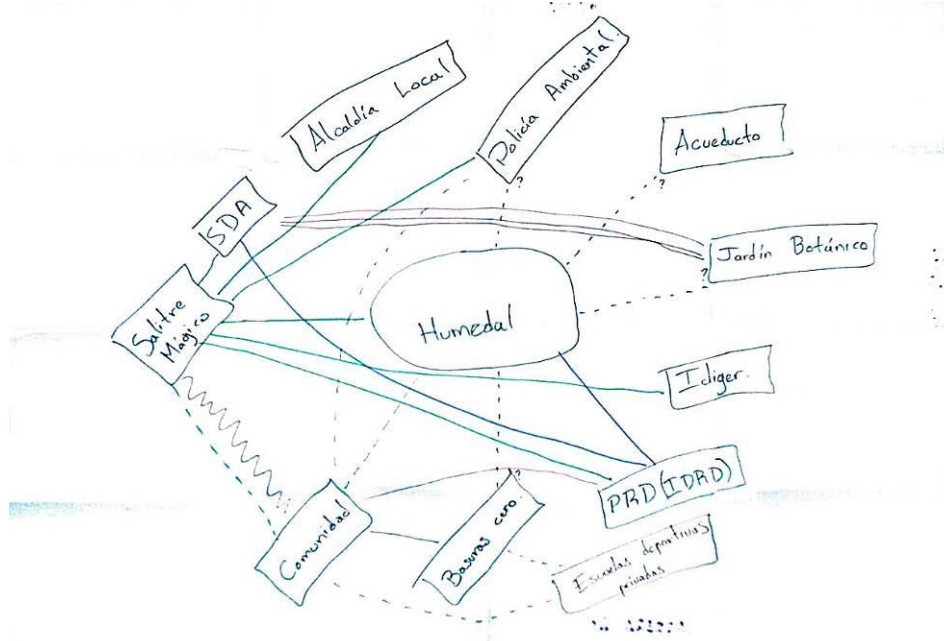 Alcaldía Local
Policía Ambiental
?
Acueducto
?
SDA
Jardín Botánico
?
Salitre
Mágico
Humedal
Idiger.
PRD(IDRD)
?
Comunidad
Basuras cero
Escuelas deportivas
privadas